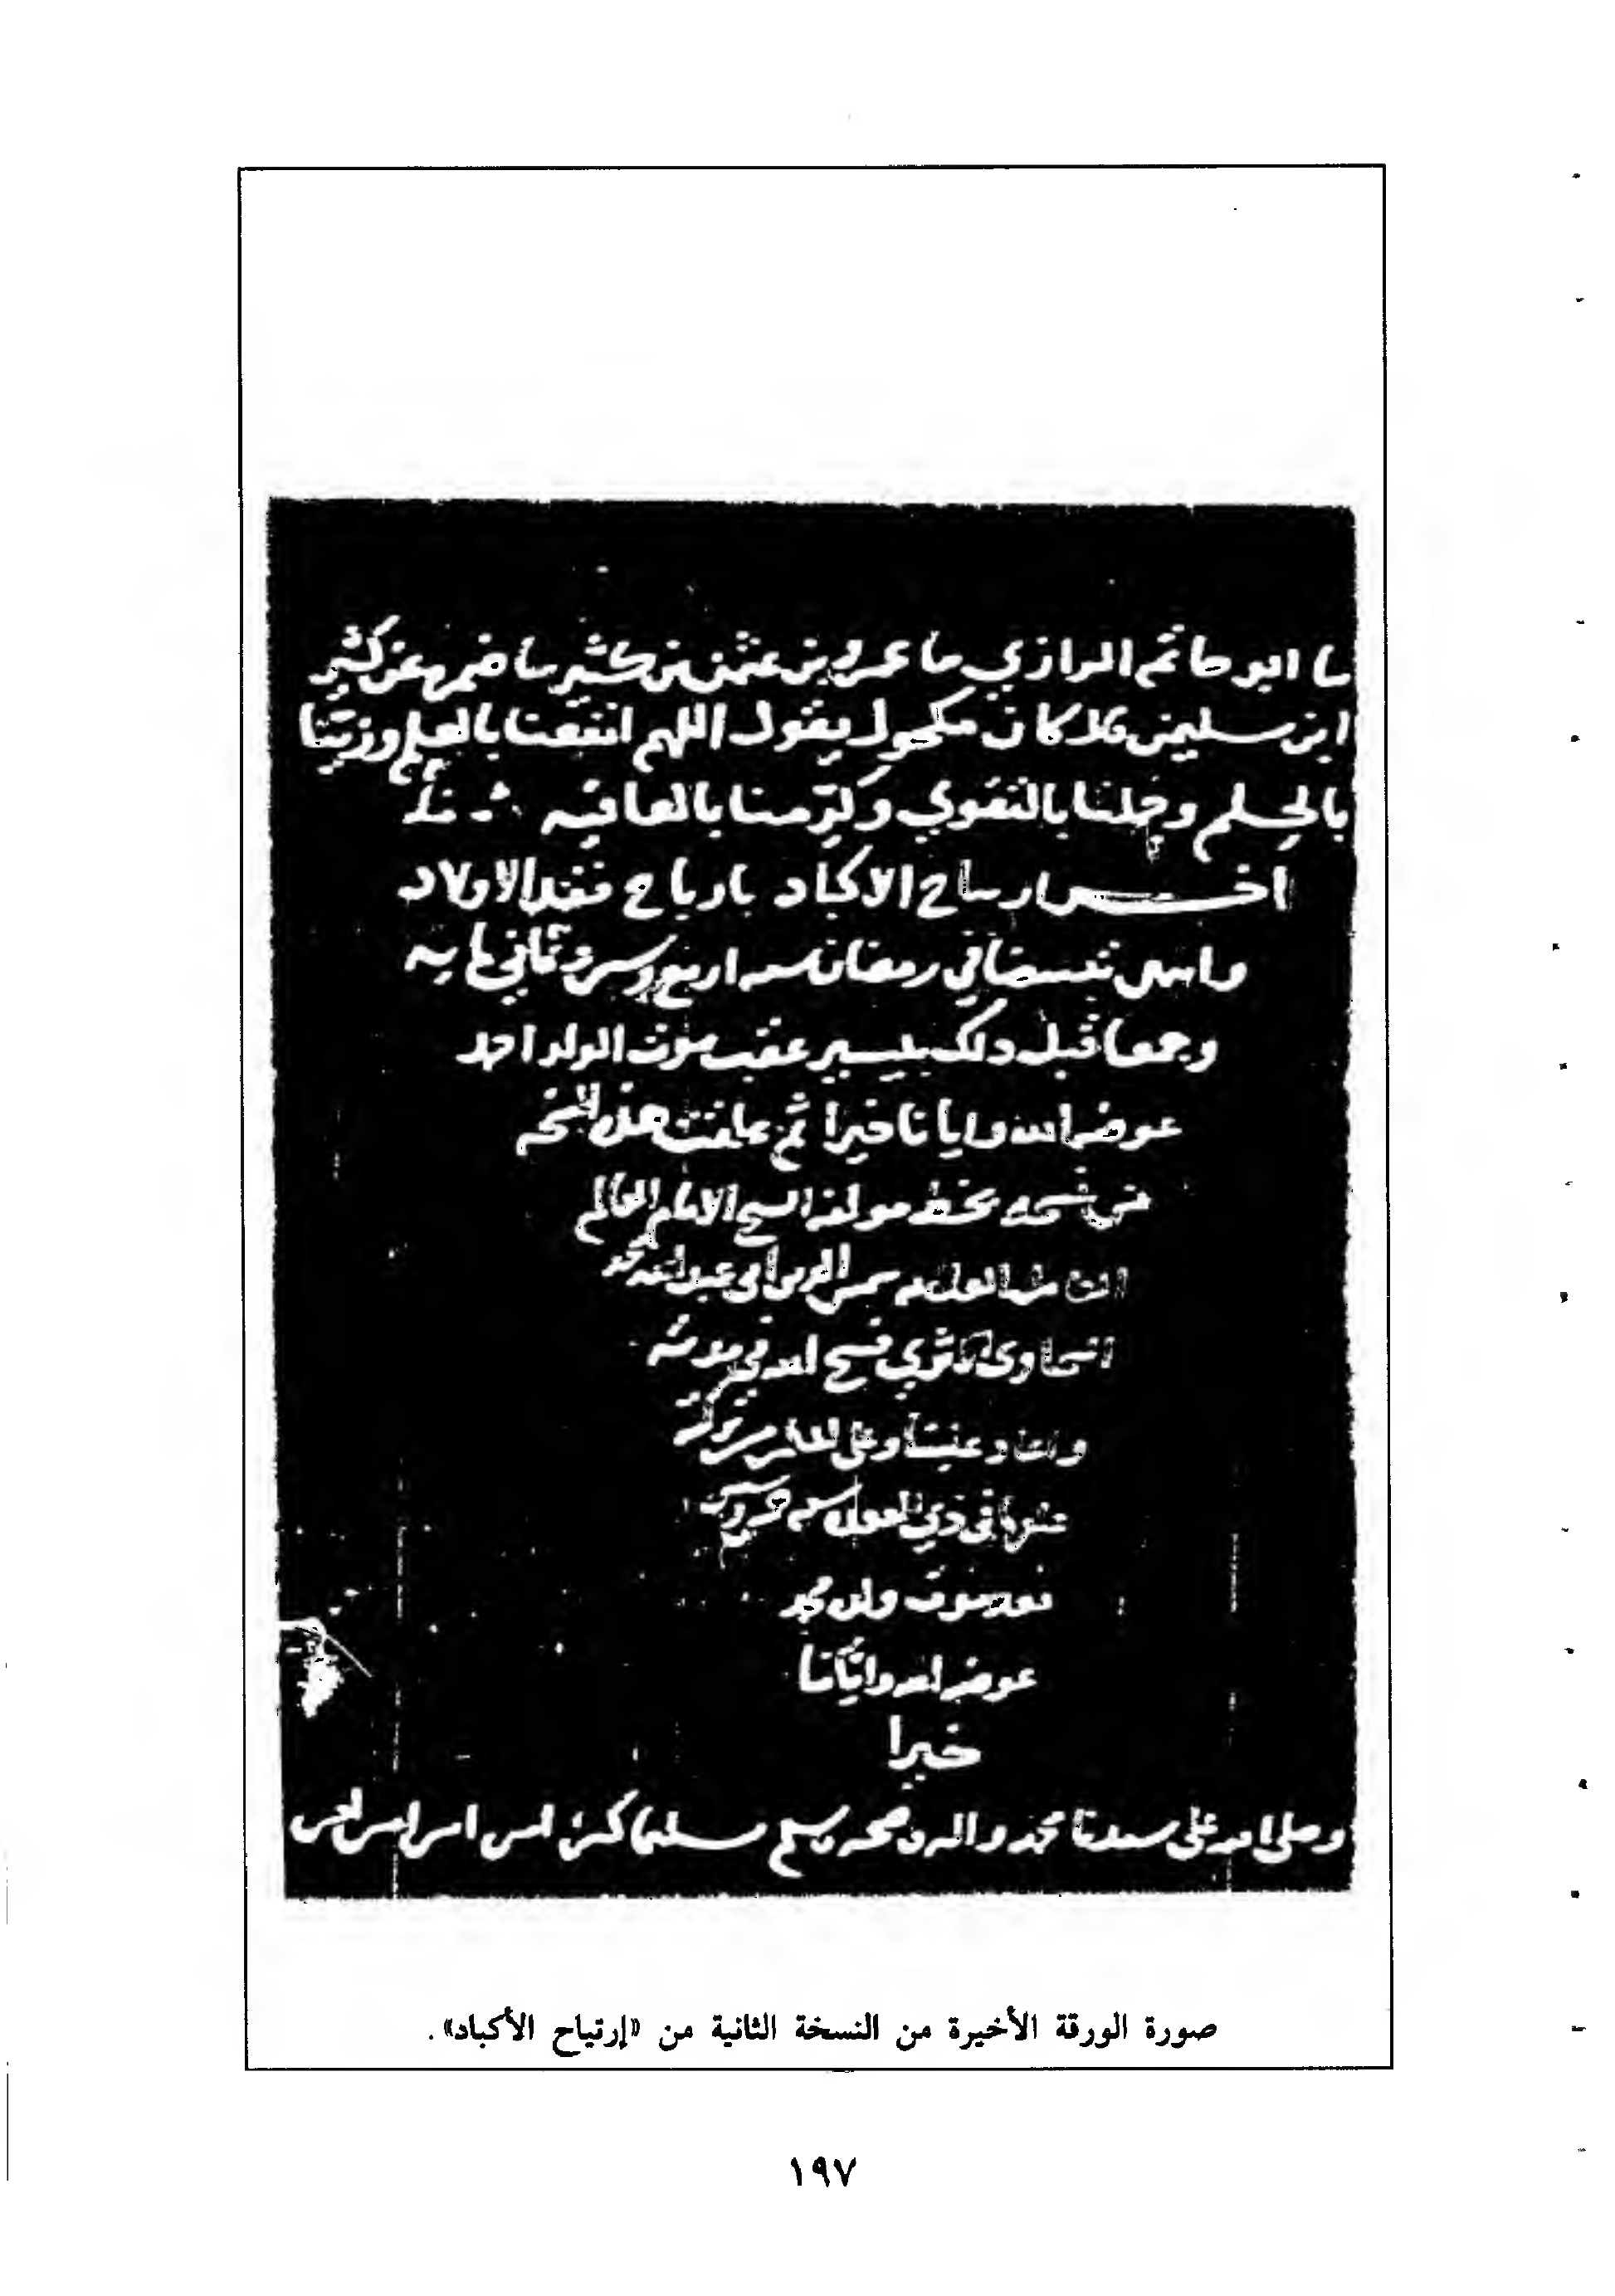 ثنا ابو حاتم الرازي ثنا عمرو بن عثمن بن كثير ثنا ضمره عن كثير
ابن سليمن قال كان مكحول يقول اللهم انفعنا بالعلم وزينا
بالحلم وجملنا بالتقوي وكرمنا بالعافيه
اخر ارتياح الاكباد بارباح فقد الاولاد
وانتهى تبييضا في رمضان سنه اربع وستين وثماني مايه
وجمعا قبل ذلك بيسير عقب موت الولد احمد
عوضه الله وايانا خيرا ثم علقت هذه النسخه
من نسخه بخط مولفه الشيخ الامام العالم
العلامه شمس الدين ابي عبد الله محمد
السخاوى الاثري فسح الله في مدته
واعاد علينا وعلى المسلمين من بركته
في ذي القعده سنه
بعد موت ولدي محمد
عوضه الله وايانا
خيرا
وصلى الله على سيدنا محمد واله وصحبه وسلم تسليما كثيرا امين امين امين
صورة الورقة الأخيرة من النسخة الثانية من «إرتياح الأكباد».
١٩٧